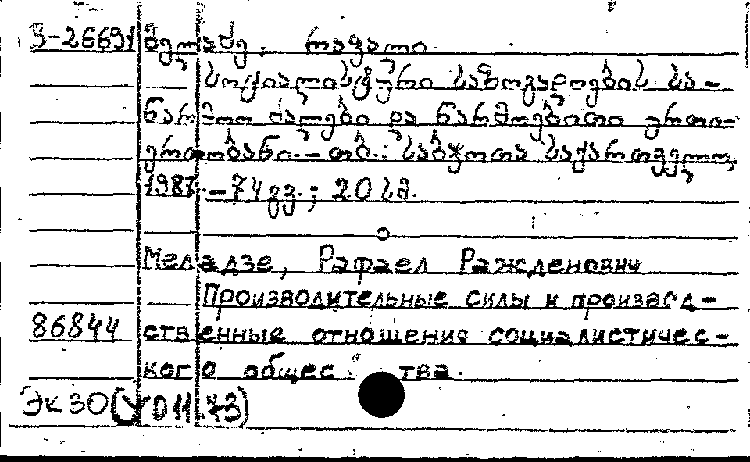 3-26691 მელაძე, რაფაელ
სოციალისტური საზოგადოების სა-
წარმოო ძალები და წარმოებითი ურთი-
ერთობანი. – თბ.: საბჭოთა საქართველო,
1987. – 74 გვ.; 20 სმ.
Меладзе, Рафаел Ражденович
Производительные силы и производ-
86844 ственные отношения социалистичес-
кого общес тва.
Эк 30 (У011.73)